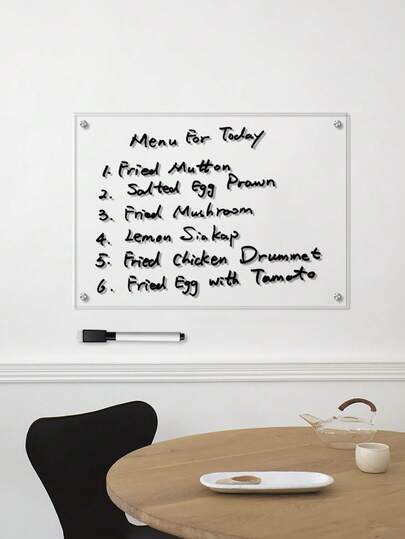 Menu For Today
1. Fried Mutton
2. Salted Egg Prawn
3. Fried Mushroom
4. Lemon Siakap
5. Fried Chicken Drummet
6. Fried Egg with Tomato